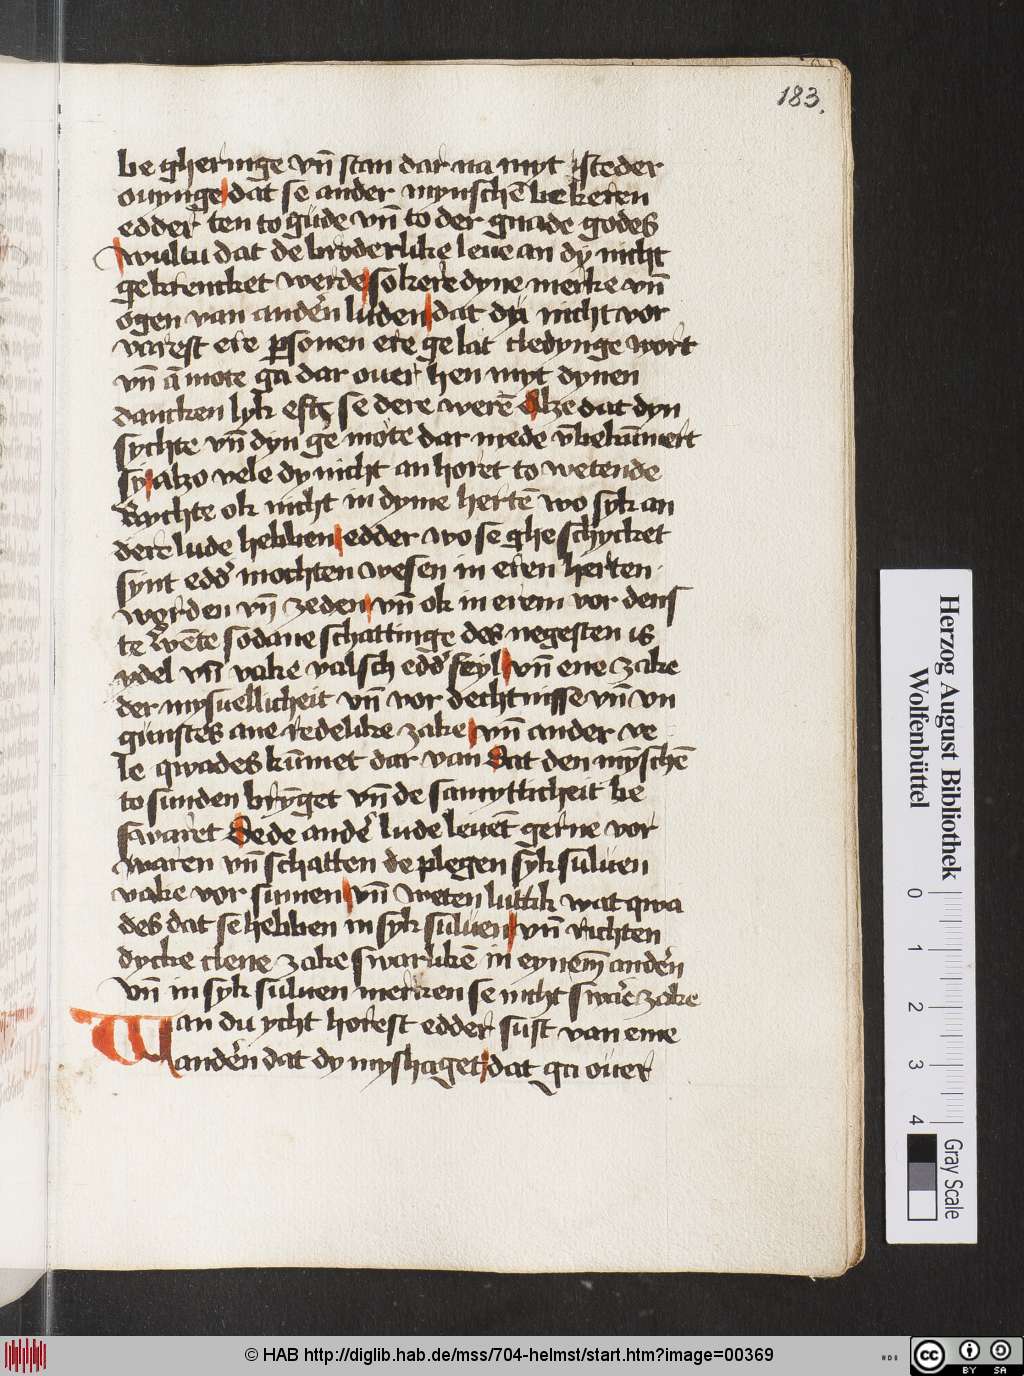 183.
be gheringe vn̄ stan dar na myt isteder
ouynge dat se ander mynschē bekeren
edder ten to gude vn̄ to der gnade godes
wultu dat de broderlike leue an dy nicht
gekrencket werde so kere dyne merke vn̄
ogen van andern luden dat du nicht vor
varest ere psonen ere gelat cledynge wort
vn̄ ā mote ga dar ouer hen myt dynen
dancken lyk eft se dere werē Alze dat dyn
sychte vn̄ dyn ge mote dar mede v̄bekūmert
sy alzo vele dy nicht an horet to wetende
Rychte ok nicht in dyme hertē wo syk an
dere lude hebben edder wo se ghe schycket
synt edd' mochten wesen in eren herten
werden vn̄ zeden vn̄ ok in erem vor dens
te wēte sodane schattinge des negesten is
ydel vn̄ vake valsch edd' feyl vn̄ ene zake
der mysuellicheit vn̄ vor dechtnisse vn̄ vn
gunstes ane redelike zake vn̄ ander ve
le qwades kūmet dar van Dat den mȳschē
to sunden brȳget vn̄ de samytlicheit be
swaret De de ander lude leuēt gerne vor
waren vn̄ schatten de plegen syk suluen
vake vor sumen vn̄ weten luttik wat qwa
des dat se hebben in syk suluen vn̄ richten
dycke clene zake swarlikē in eynem andern
vn̄ in syk suluen merken se nicht sware zake
Wan du ycht horest edder sust van eme
andern dat dy myshaget dat ga ouer
Herzog August Bibliothek
Wolfenbüttel
0 1 2 3 4
Gray Scale
© HAB http://diglib.hab.de/mss/704-helmst/start.htm?image=00369
HAB
cc BY SA